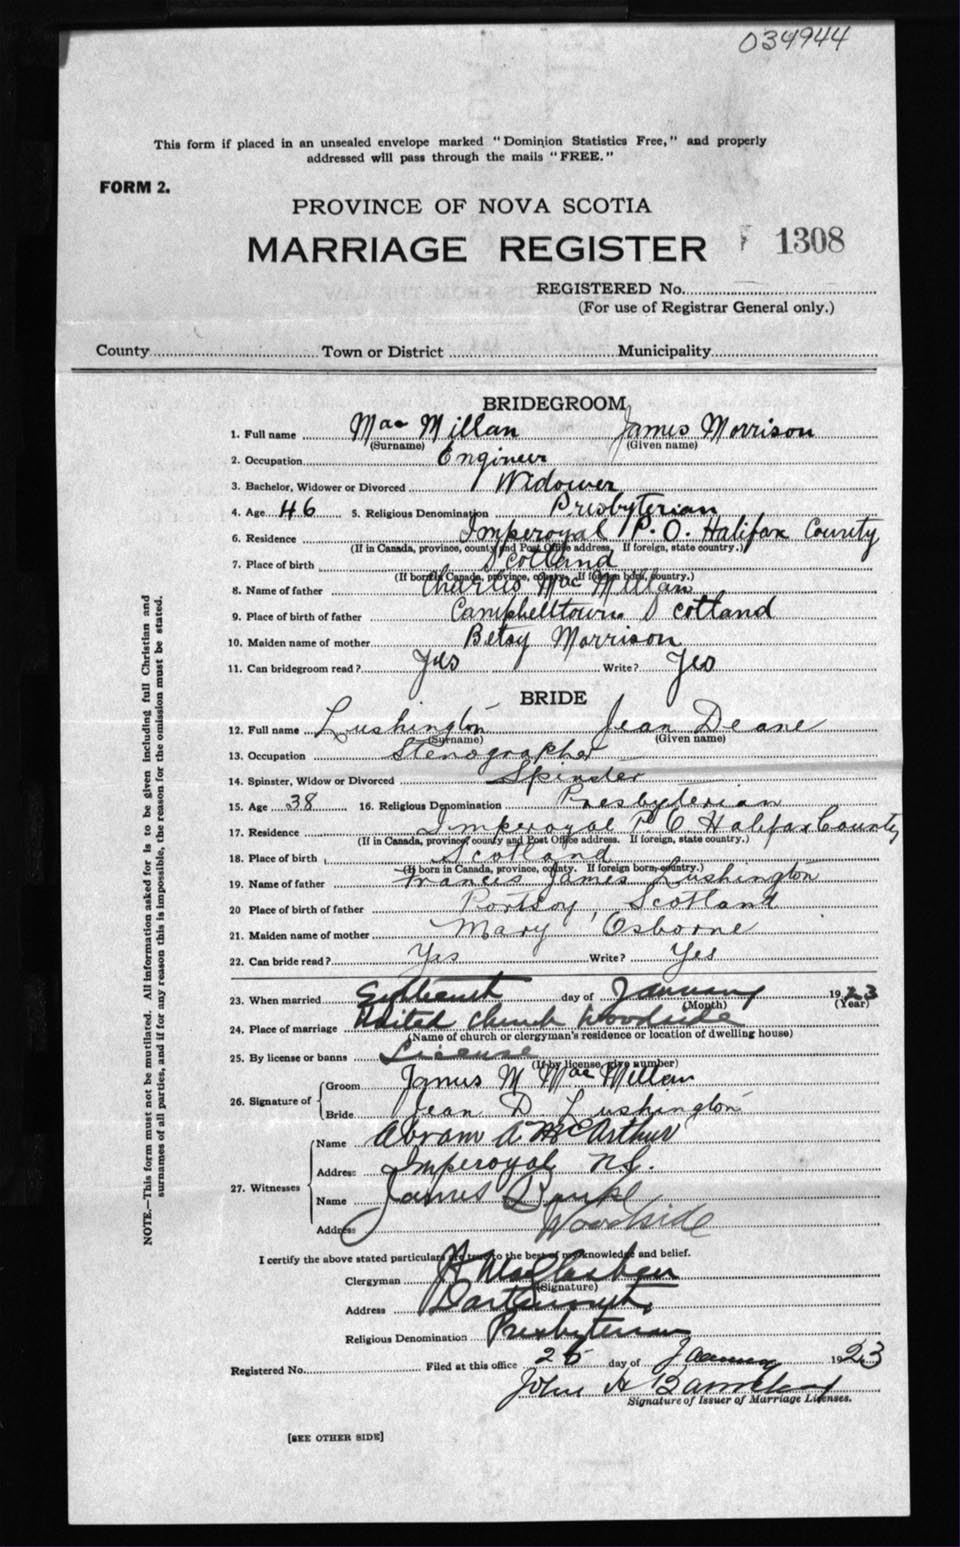 034944
This form if placed in an unsealed envelope marked "Dominion Statistics Free," and properly
addressed will pass through the mails "FREE."
FORM 2.
PROVINCE OF NOVA SCOTIA
MARRIAGE REGISTER 1308
REGISTERED No.
(For use of Registrar General only.)
County Town or District Municipality
BRIDEGROOM
1. Full name Mac Millan James Morrison
(Surname) (Given name)
2. Occupation Engineer
3. Bachelor, Widower or Divorced Widower
4. Age 46 5. Religious Denomination Presbyterian
6. Residence Imperoyal P.O. Halifax County
(If in Canada, province, county and Post Office address. If foreign, state country.)
7. Place of birth Scotland
(If born in Canada, province, county. If foreign born, country.)
8. Name of father Charles Mac Millan
9. Place of birth of father Campbelltown Scotland
10. Maiden name of mother Betsy Morrison
11. Can bridegroom read? Yes Write? Yes
BRIDE
12. Full name Lushington Jean Deane
(Surname) (Given name)
13. Occupation Stenographer
14. Spinster, Widow or Divorced Spinster
15. Age 38 16. Religious Denomination Presbyterian
17. Residence Imperoyal P.O Halifax County
(If in Canada, province, county and Post Office address. If foreign, state country.)
18. Place of birth Scotland
(If born in Canada, province, county. If foreign born, country.)
19. Name of father Francis James Lushington
20 Place of birth of father Portsoy, Scotland
21. Maiden name of mother Mary Osborne
22. Can bride read? Yes Write? Yes
23. When married day of January 1923
(Month) (Year)
24. Place of marriage United Church Woodside
(Name of church or clergyman's residence or location of dwelling house)
25. By license or banns License
(If by license, give number)
26. Signature of
Groom James M Mac Millan
Bride Jean D Lushington
27. Witnesses
Name Abram A McArthur
Address Imperoyal N.S.
Name James
Address Woodside
I certify the above stated particulars are true to the best of my knowledge and belief.
Clergyman
(Signature)
Address Dartmouth
Religious Denomination Presbyterian
Registered No. Filed at this office day of January 1923
John A
Signature of Issuer of Marriage Licenses.
[SEE OTHER SIDE]
NOTE.—This form must not be mutilated. All information asked for is to be given including full Christian and
surnames of all parties, and if for any reason this is impossible, the reason for the omission must be stated.